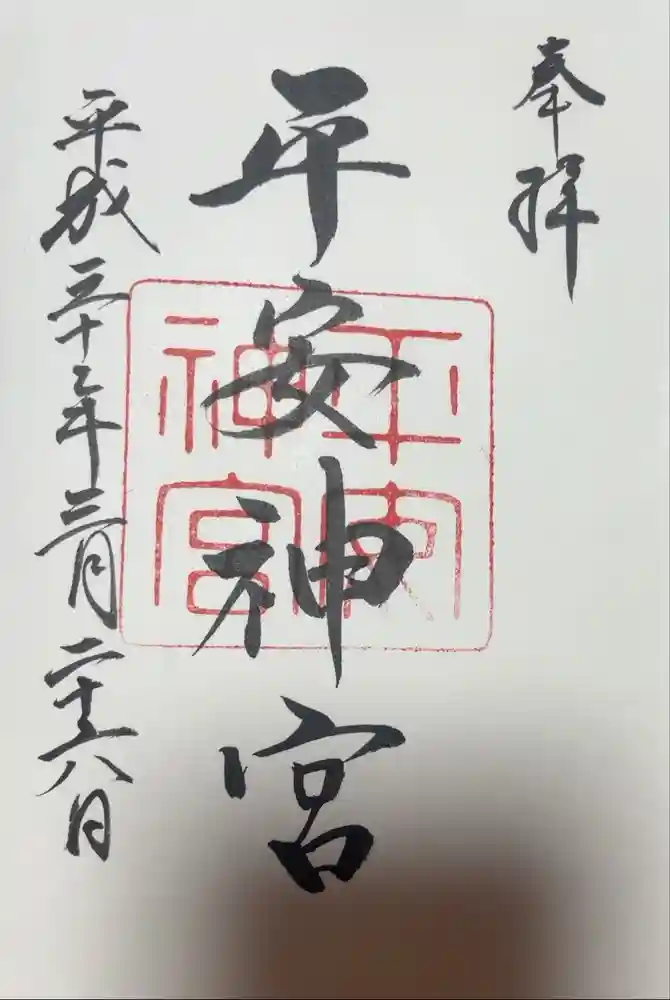 奉拝
平安神宮
平成三十年三月二十六日
平安
神宮